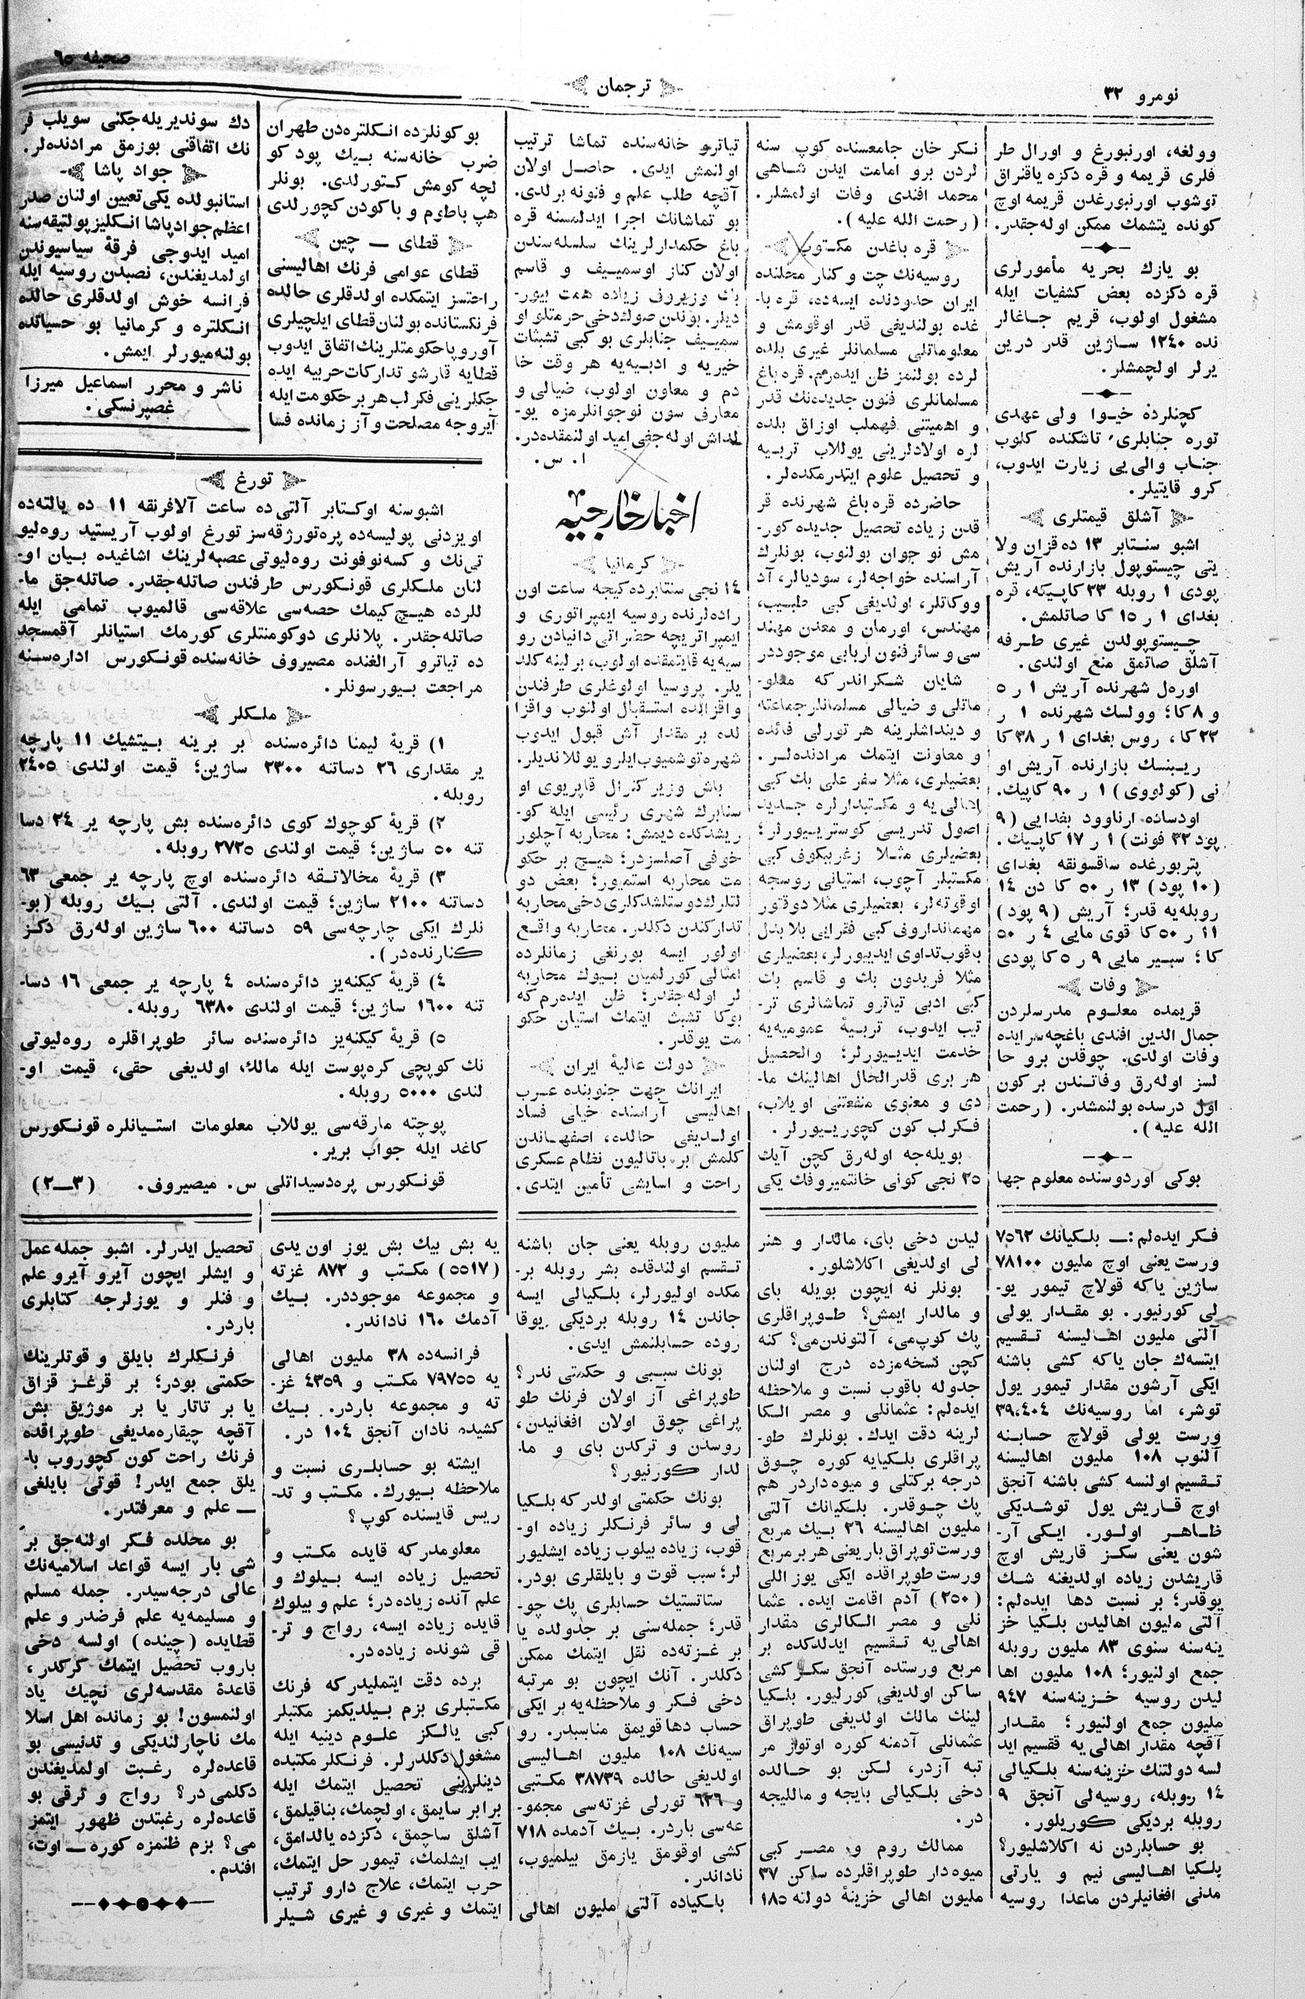 نومرو ٣٢
ترجمان
صحيفه ٦٥
وولغه، اورنبورغ و اورال طر
فلرى قريمه و قره دكزه ياقنراق
توشوب اورنبورغدن قريمه اوچ
كونده يتشمك ممكن اوله‌جقدر.
بو يازك بحريه مأمورلرى
قره دكزده بعض كشفيات ايله
مشغول اولوب، قريم جاغالر
نده ١٢٤٠ ساژين قدر درين
يرلر اولچمشلر.
كچنلرده خيوا ولى عهدى
توره جنابلرى، تاشكنده كلوب
جناب والى‌يى زيارت ايدوب،
كرو قايتيلر.
آشلق قيمتلرى
اشبو سنتابر ١٣ ده قزان ولا
يتى چيستوپول بازارنده آريش
پودى ١ روبله ٢٣ كاپيكه، قره
بغداى ١ ر ١٥ كا صاتلمش.
چيستوپولدن غيرى طرفه
آشلق صاتمق منع اولندى.
اوره‌ل شهرنده آريش ١ ر ٥
و ٨ كا؛ وولسك شهرنده ١ ر
٢٢ كا، روس بغداى ١ ر ٣٨ كا
ريبنسك بازارنده آريش او
نى (كولووى) ١ ر ٩٠ كاپيك.
اودساده ارناوود بغدايى (٩
پود ٣٢ فونت) ١ ر ١٧ كاپيك.
پتربورغده ساقسونقه بغداى
(١٠ پود) ١٣ ر ٥٠ كا دن ١٤
روبله‌يه قدر؛ آريش (٩ پود)
١١ ر ٥٠ كا قوى مايى ٤ ر ٥٠
كا؛ سبير مايى ٩ ر ٥ كا پودى
وفات
قريمده معلوم مدرسلردن
جمال الدين افندى باغچه‌سرايده
وفات اولدى. چوقدن برو حا
لسز اوله‌رق وفاتندن بر كون
اول درسده بولنمشدر. (رحمت
الله عليه).
بوكى اوردوسنده معلوم جها
نكر خان جامعسنده كوپ سنه
لردن برو امامت ايدن شاهى
محمد افندى وفات اولمشلر.
(رحمت الله عليه).
قره باغدن مكتوب
روسيه‌نك چت و كنار محلنده
ايران حدودنده ايسه‌ده، قره با-
غده بولنديغى قدر اوقومش و
معلوماتلى مسلمانلر غيرى بلده
لرده بولنمز ظن ايده‌رم. قره باغ
مسلمانلرى فنون جديده‌نك قدر
و اهميتنى فهملب اوزاق بلده
لره اولادلرينى يوللاب تربيه
و تحصيل علوم ايتدرمكده‌لر.
حاضرده قره باغ شهرنده قر
قدن زياده تحصيل جديده كور-
مش نو جوان بولنوب، بونلرك
آراسنده خواجه‌لر، سوديالر، آد
ووكاتلر، اولديغى كبى طبيب،
مهندس، اورمان و معدن مهند
سى و سائر فنون اربابى موجوددر
شايان شكراندر كه معلو-
ماتلى و ضيالى مسلمانلر جماعته
و دينداشلرينه هر تورلى فائده
و معاونت ايتمك مرادنده‌لر.
بعضيلرى، مثلا سفر على بك كبى
اهالى‌يه و مكتبدارلره جديد
اصول تدريسى كوستريبورلر؛
بعضيلرى مثلا زغربكوف كبى
مكتبلر آچوب، استيانى روسچه
اوقوته‌لر، بعضيلرى مثلا دوقتور
مهمانداروف كبى فقرايى بلا بدل
باقوب تداوى ايديبورلر، بعضيلرى
مثلا فريدون بك و قاسم بك
كبى ادبى تياترو تماشالرى تر-
تيب ايدوب، تربيۀ عموميه‌يه
خدمت ايديبورلر؛ والحصيل
هر برى قدر الحال اهالينك ما-
دى و معنوى منفعتنى اويلاب،
فكرلب كون كچوريبورلر.
بويله‌جه اوله‌رق كچن آيك
٢٥ نجى كونى خانتميروفك يكى
تياترو خانه‌سنده تماشا ترتيب
اولنمش ايدى. حاصل اولان
آقچه طلب علم و فنونه برلدى.
بو تماشانك اجرا ايدلمسنه قره
باغ حكمدارلرينك سلسله‌سندن
اولان كناز اوسمييف و قاسم
بك وزيروف زياده همت بيور-
ديلر. بوندن صوك دخى حرمتلو او
سمييف جنابلرى بو كبى تشبثات
خيريه و ادبيه‌يه هر وقت خا
دم و معاون اولوب، ضيالى و
معارف سون نوجوانلرمزه يو-
لداش اوله جغى اميد اولنمقده‌در.
ا. س.
اخبار خارجيه
كرمانيا
١٤ نجى سنتابرده كيجه ساعت اون
راده‌لرنده روسيه ايمپراتورى و
ايمپراتريچه حضراتى دانيادن رو
سيه‌يه قايتمقده اولوب، برلينه كلد
يلر. پروسيا اولوغلرى طرفندن
واقزالده استقبال اولنوب واقزا
لده بر مقدار آش قبول ايدوب
شهره توشميوب ايلرو يوللانديلر.
باش وزير كنرال قاپريوى او
سنابرك شهرى رئيسى ايله كو-
ريشدكده ديمش: محاربه آچلور
خوفى آصلسزدر؛ هيچ بر حكو
مت محاربه استمبور؛ بعض دو
لتلرك دوستلشدكلرى دخى محاربه
تداركندن دكلدر. محاربه واقع
اولور ايسه بورنغى زمانلرده
امثالى كورلميان بيوك محاربه
لر اوله‌جقدر؛ ظن ايده‌رم كه
بوكا تشبث ايتمك استيان حكو
مت يوقدر.
دولت عاليۀ ايران
ايرانك جهت جنوبنده عرب
اهاليسى آراسنده خيلى فساد
اولديغى حالده، اصفهاندن
كلمش بر باتاليون نظام عسكرى
راحت و اسايشى تأمين ايتدى.
بو كونلرده انكلتره‌دن طهران
ضرب خانه‌سنه بيك پود كو
لچه كومش كتورلدى. بونلر
هپ باطوم و باكودن كچورلدى
قطاى — چين
قطاى عوامى فرنك اهاليسنى
راحتسز ايتمكده اولدقلرى حالده
فرنكستانده بولنان قطاى ايلچيلرى
آوروپا حكومتلرينك اتفاق ايدوب
قطايه قارشو تداركات حربيه ايده
جكلرينى فكرلب هر بر حكومت ايله
آيروجه مصلحت و آز زمانده فسا
دك سونديريله‌جكنى سويلب فر
نك اتفاقنى بوزمق مرادنده‌لر.
جواد پاشا
استانبولده يكى تعيين اولنان صدر
اعظم جواد پاشا انكليز پولتيقه‌سنه
اميد ايدوجى فرقۀ سياسيوندن
اولمديغندن، نصبدن روسيه ايله
فرانسه خوش اولدقلرى حالده
انكلتره و كرمانيا بو حسياتده
بولنه‌ميورلر ايمش.
ناشر و محرر اسماعيل ميرزا
غصپرنسكى.
تورغ
اشبو سنه اوكتابر آلتى ده ساعت آلافرنقه ١١ ده يالته‌ده
اويزدنى پوليسه‌ده پره‌تورژقه‌سز تورغ اولوب آريستيد روه‌ليو
تى‌نك و كسه‌نوفونت روه‌ليوتى عصبه‌لرينك اشاغيده بيان او-
لنان ملكلرى قونكورس طرفندن صاتله‌جقدر. صاتله‌جق ما-
للرده هيچ كيمك حصه‌سى علاقه‌سى قالميوب تمامى ايله
صاتله‌جقدر. پلانلرى دوكومنتلرى كورمك استيانلر آقمسجد
ده تياترو آرالغنده مصيروف خانه‌سنده قونكورس اداره‌سنه
مراجعت بيورسونلر.
ملكلر
١) قريۀ ليمنا دائره‌سنده بر برينه بيتشيك ١١ پارچه
ير مقدارى ٢٦ دساتنه ٢٣٠٠ ساژين؛ قيمت اولندى ٢٤٠٥
روبله.
٢) قريۀ كوچوك كوى دائره‌سنده بش پارچه ير ٢٤ دسا
تنه ٥٠ ساژين؛ قيمت اولندى ٢٧٢٥ روبله.
٣) قريۀ مخالاتقه دائره‌سنده اوچ پارچه ير جمعى ٦٣
دساتنه ٢١٠٠ ساژين؛ قيمت اولندى. آلتى بيك روبله (بو-
نلرك ايكى چارچه‌سى ٥٩ دساتنه ٦٠٠ ساژين اوله‌رق دكز
كنارنده‌در).
٤) قريۀ كيكنه‌يز دائره‌سنده ٤ پارچه ير جمعى ١٦ دسا-
تنه ١٦٠٠ ساژين؛ قيمت اولندى ٦٣٨٠ روبله.
٥) قريۀ كيكنه‌يز دائره‌سنده سائر طوپراقلره روه‌ليوتى
نك كوپچى كره‌پوست ايله مالك، اولديغى حقى، قيمت او-
لندى ٥٠٠٠ روبله.
پوچته مارقه‌سى يوللاب معلومات استيانلره قونكورس
كاغد ايله جواب برير.
قونكورس پره‌دسيداتلى س. ميصيروف. (٣—٢)
فكر ايده‌لم: — بلكيانك ٧٥٦٢
ورست يعنى اوچ مليون ٧٨١٠٠
ساژين ياكه قولاچ تيمور يو-
لى كورنيور. بو مقدار يولى
آلتى مليون اهاليسنه تقسيم
ايتسه‌ك جان ياكه كشى باشنه
ايكى آرشون مقدار تيمور يول
توشر، اما روسيه‌نك ٣٩،٤٠٤
ورست يولى قولاچ حسابنه
آلنوب ١٠٨ مليون اهاليسنه
تقسيم اولنسه كشى باشنه آنجق
اوچ قاريش يول توشديكى
ظاهر اولور. ايكى آر-
شون يعنى سكز قاريش اوچ
قاريشدن زياده اولديغنه شك
يوقدر؛ بر نسبت دها ايده‌لم:
آلتى مليون اهاليدن بلكيا خز
ينه‌سنه سنوى ٨٣ مليون روبله
جمع اولنيور؛ ١٠٨ مليون اها
ليدن روسيه خزينه‌سنه ٩٤٧
مليون جمع اولنيور؛ مقدار
آقچه مقدار اهالى‌يه تقسيم ايد
لسه دولتنك خزينه‌سنه بلكيالى
١٤ روبله، روسيه‌لى آنجق ٩
روبله برديكى كوريلور.
بو حسابلردن نه اكلاشليور؟
بلكيا اهاليسى نيم و يارتى
مدنى افغانيلردن ماعدا روسيه
ليدن دخى باى، مالدار و هنر
لى اولديغى اكلاشلور.
بونلر نه ايچون بويله باى
و مالدار ايمش؟ طوپراقلرى
پك كوپ‌مى، آلتوندن‌مى؟ كنه
كچن نسخه‌مزده درج اولنان
جدوله باقوب نسبت و ملاحظه
ايده‌لم: عثمانلى و مصر الكا
لرينه دقت ايدك. بونلرك طو-
پراقلرى بلكيايه كوره چوق
درجه بركتلى و ميوه‌داردر هم
پك چوقدر. بلكيانك آلتى
مليون اهاليسنه ٢٦ بيك مربع
ورست توپراق بار يعنى هر بر مربع
ورست طوپراقده ايكى يوز اللى
(٢٥٠) آدم اقامت ايده. عثما
نلى و مصر الكالرى مقدار
اهالى‌يه تقسيم ايدلدكده بر
مربع ورستده آنجق سكز كشى
ساكن اولديغى كورليور. بلكيا
لينك مالك اولديغى طوپراق
عثمانلى آدمنه كوره اوتوز مر
تبه آزدر، لكن بو حالده
دخى بلكيالى بايجه و ماللیجه
در.
ممالك روم و مصر كبى
ميوه‌دار طوپراقلرده ساكن ٣٧
مليون اهالى خزينۀ دولته ١٨٥
مليون روبله يعنى جان باشنه
تقسم اولندقده بشر روبله بر-
مكده اوليورلر، بلكيالى ايسه
جاندن ١٤ روبله برديكى يوقا
روده حسابلنمش ايدى.
بونك سببى و حكمتى ندر؟
طوپراغى آز اولان فرنك طو
پراغى چوق اولان افغانيدن،
روسدن و تركدن باى و ما-
لدار كورنيور؟
بونك حكمتى اولدر كه بلكيا
لى و سائر فرنكلر زياده او-
قوب، زياده بيلوب زياده ايشليور
لر؛ سبب قوت و بايلقلرى بودر.
ستاتستيك حسابلرى پك چو-
قدر؛ جمله‌سنى بر جدولده يا
بر غزته‌ده نقل ايتمك ممكن
دكلدر. آنك ايچون بو مرتبه
دخى فكر و ملاحظه‌يه بر ايكى
حساب دها قويمق مناسبدر. رو
سيه‌نك ١٠٨ مليون اهاليسى
اولديغى حالده ٣٨٧٣٩ مكتبى
و ٦٢٦ تورلى غزته‌سى مجمو-
عه‌سى باردر. بيك آدمده ٧١٨
كشى اوقومق يازمق بيلميوب،
ناداندر.
بلكياده آلتى مليون اهالى
يه بش بيك بش يوز اون يدى
(٥٥١٧) مكتب و ٨٧٢ غزته
و مجموعه موجوددر. بيك
آدمك ١٦٠ ناداندر.
فرانسه‌ده ٣٨ مليون اهالى
يه ٧٩٧٥٥ مكتب و ٤٣٥٩ غز-
ته و مجموعه باردر. بيك
كشيده نادان آنجق ١٠٤ در.
ايشته بو حسابلرى نسبت و
ملاحظه بيورك. مكتب و تد-
ريس قايسنده كوپ؟
معلومدر كه قايده مكتب و
تحصيل زياده ايسه بيلوك و
علم آنده زياده‌در؛ علم و بيلوك
قايده زياده ايسه، رواج و تر-
قى شونده زياده‌در.
برده دقت ايتمليدر كه فرنك
مكتبلرى بزم بيلديكمز مكتبلر
كبى يالكز علوم دينيه ايله
مشغول دكلدرلر. فرنكلر مكتبده
دينلرينى تحصيل ايتمك ايله
برابر سايمق، اولچمك، بناقيلمق،
آشلق ساچمق، دكزده يالدامق،
ايب ايشلمك، تيمور حل ايتمك،
حرب ايتمك، علاج دارو ترتيب
ايتمك و غيرى و غيرى شيلر
تحصيل ايدرلر. اشبو جمله عمل
و ايشلر ايچون آيرو آيرو علم
و فنلر و يوزلرجه كتابلرى
باردر.
فرنكلرك بايلق و قوتلرينك
حكمتى بودر؛ بر قرغز قزاق
يا بر تاتار يا بر موژيق بش
آقچه چيقاره‌مديغى طوپراقده
فرنك راحت كون كچوروب با-
يلق جمع ايدر! قوتى بايلغى
— علم و معرفتدر.
بو محلده فكر اولنه‌جق بر
شى بار ايسه قواعد اسلاميه‌نك
عالى درجه‌سيدر. جمله مسلم
و مسليمه‌يه علم فرضدر و علم
قطايده (چينده) اولسه دخى
باروب تحصيل ايتمك كركدر،
قاعدۀ مقدسه‌لرى نچيك ياد
اولنمسون! بو زمانده اهل اسلا
مك ناچارلنديكى و تدنيسى بو
قاعده‌لره رغبت اولمديغندن
دكلمى در؟ رواج و ترقى بو
قاعده‌لره رغبتدن ظهور ايتمز
مى؟ بزم ظنمزه كوره — اوت،
افندم.